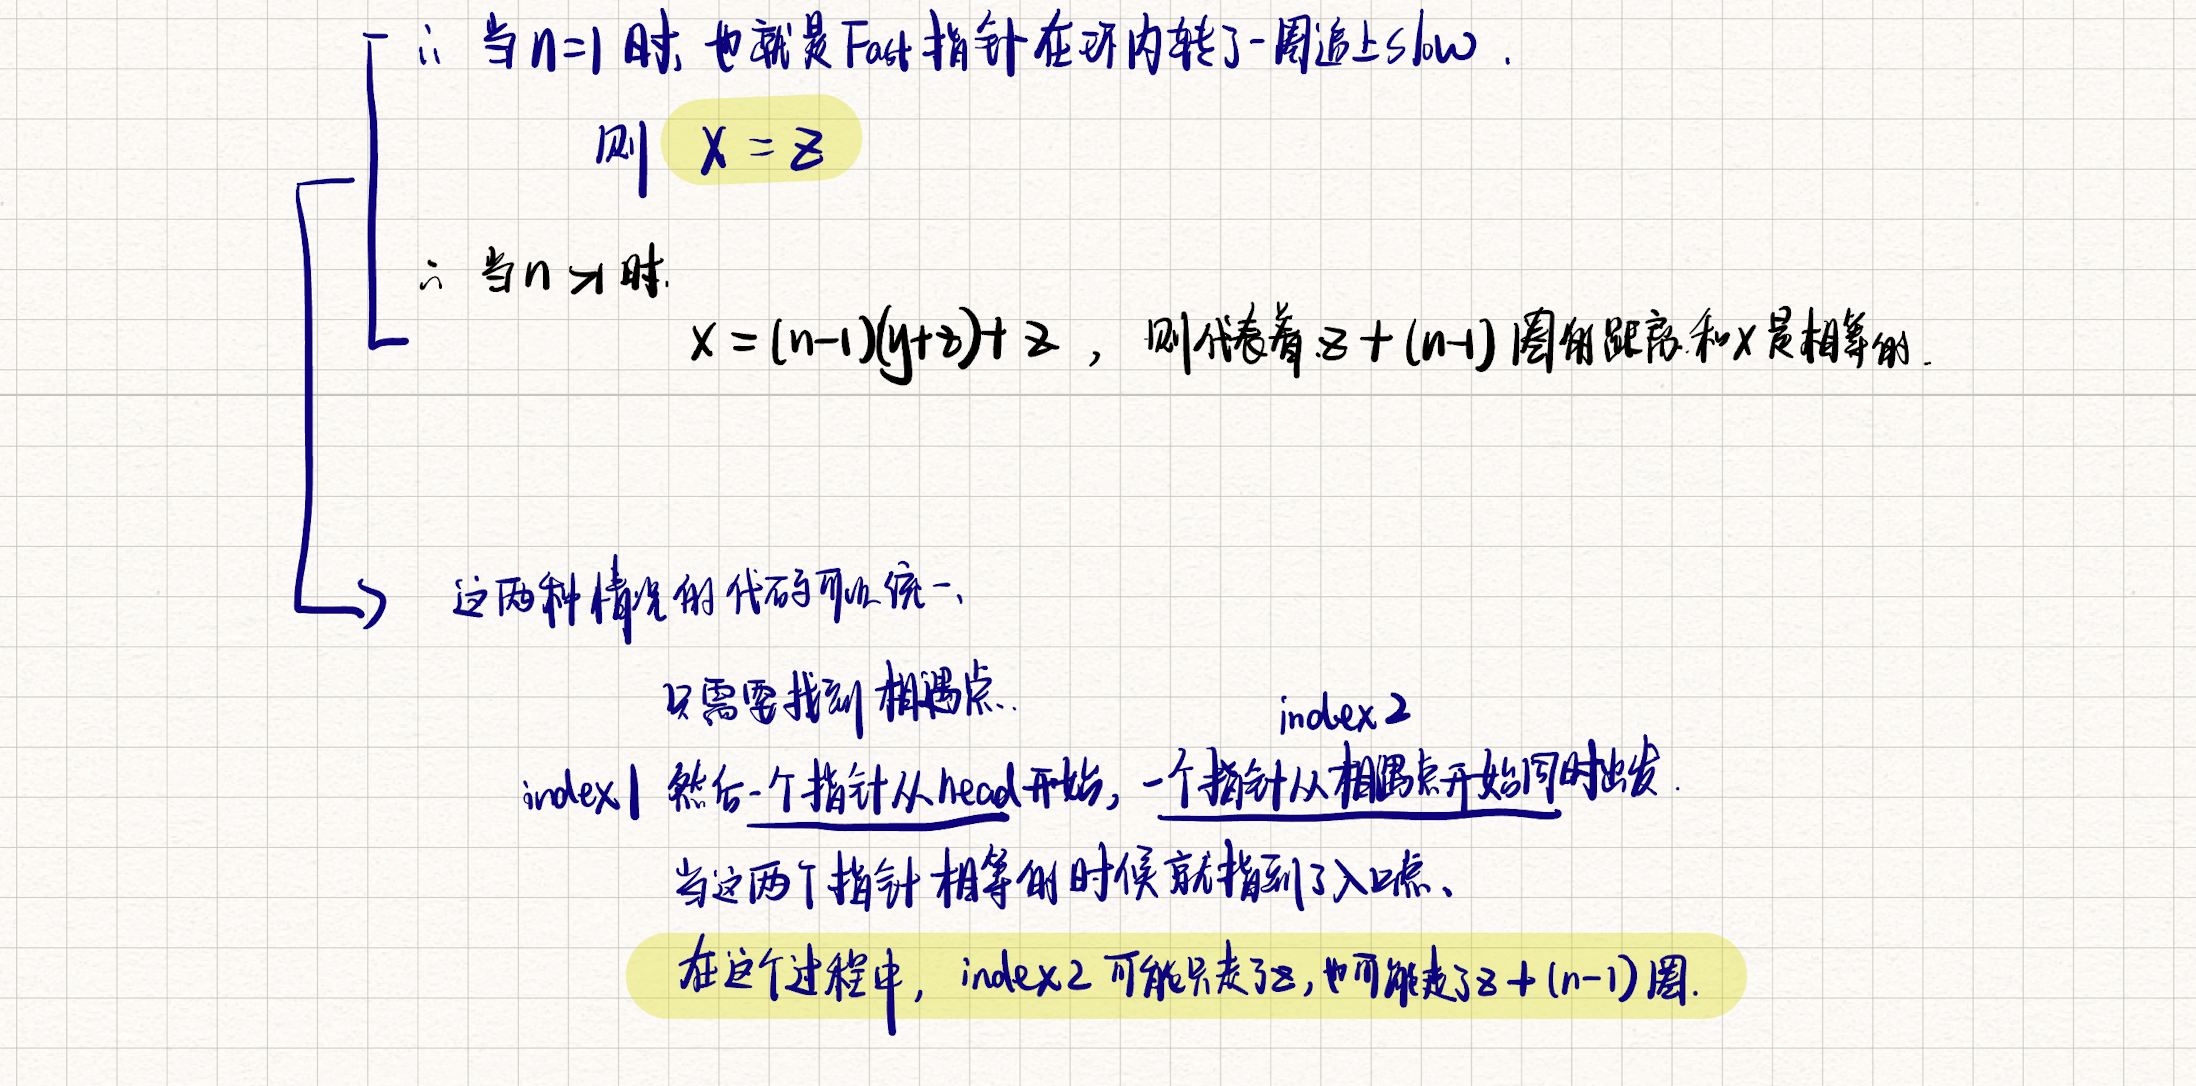 ∴ 当n=1时, 也就是Fast指针在环内转了一圈追上slow.
则 x = z
∴ 当n>1时.
x = (n-1)(y+z)+z , 则代表着 z + (n-1) 圈的距离和x是相等的.
这两种情况的代码可以统一、
只需要找到相遇点..
index2
index1 然后一个指针从head开始, 一个指针从相遇点开始同时出发.
当这两个指针相等的时候就指到了入口点、
在这个过程中, index2 可能只走了z, 也可能走了z + (n-1) 圈.